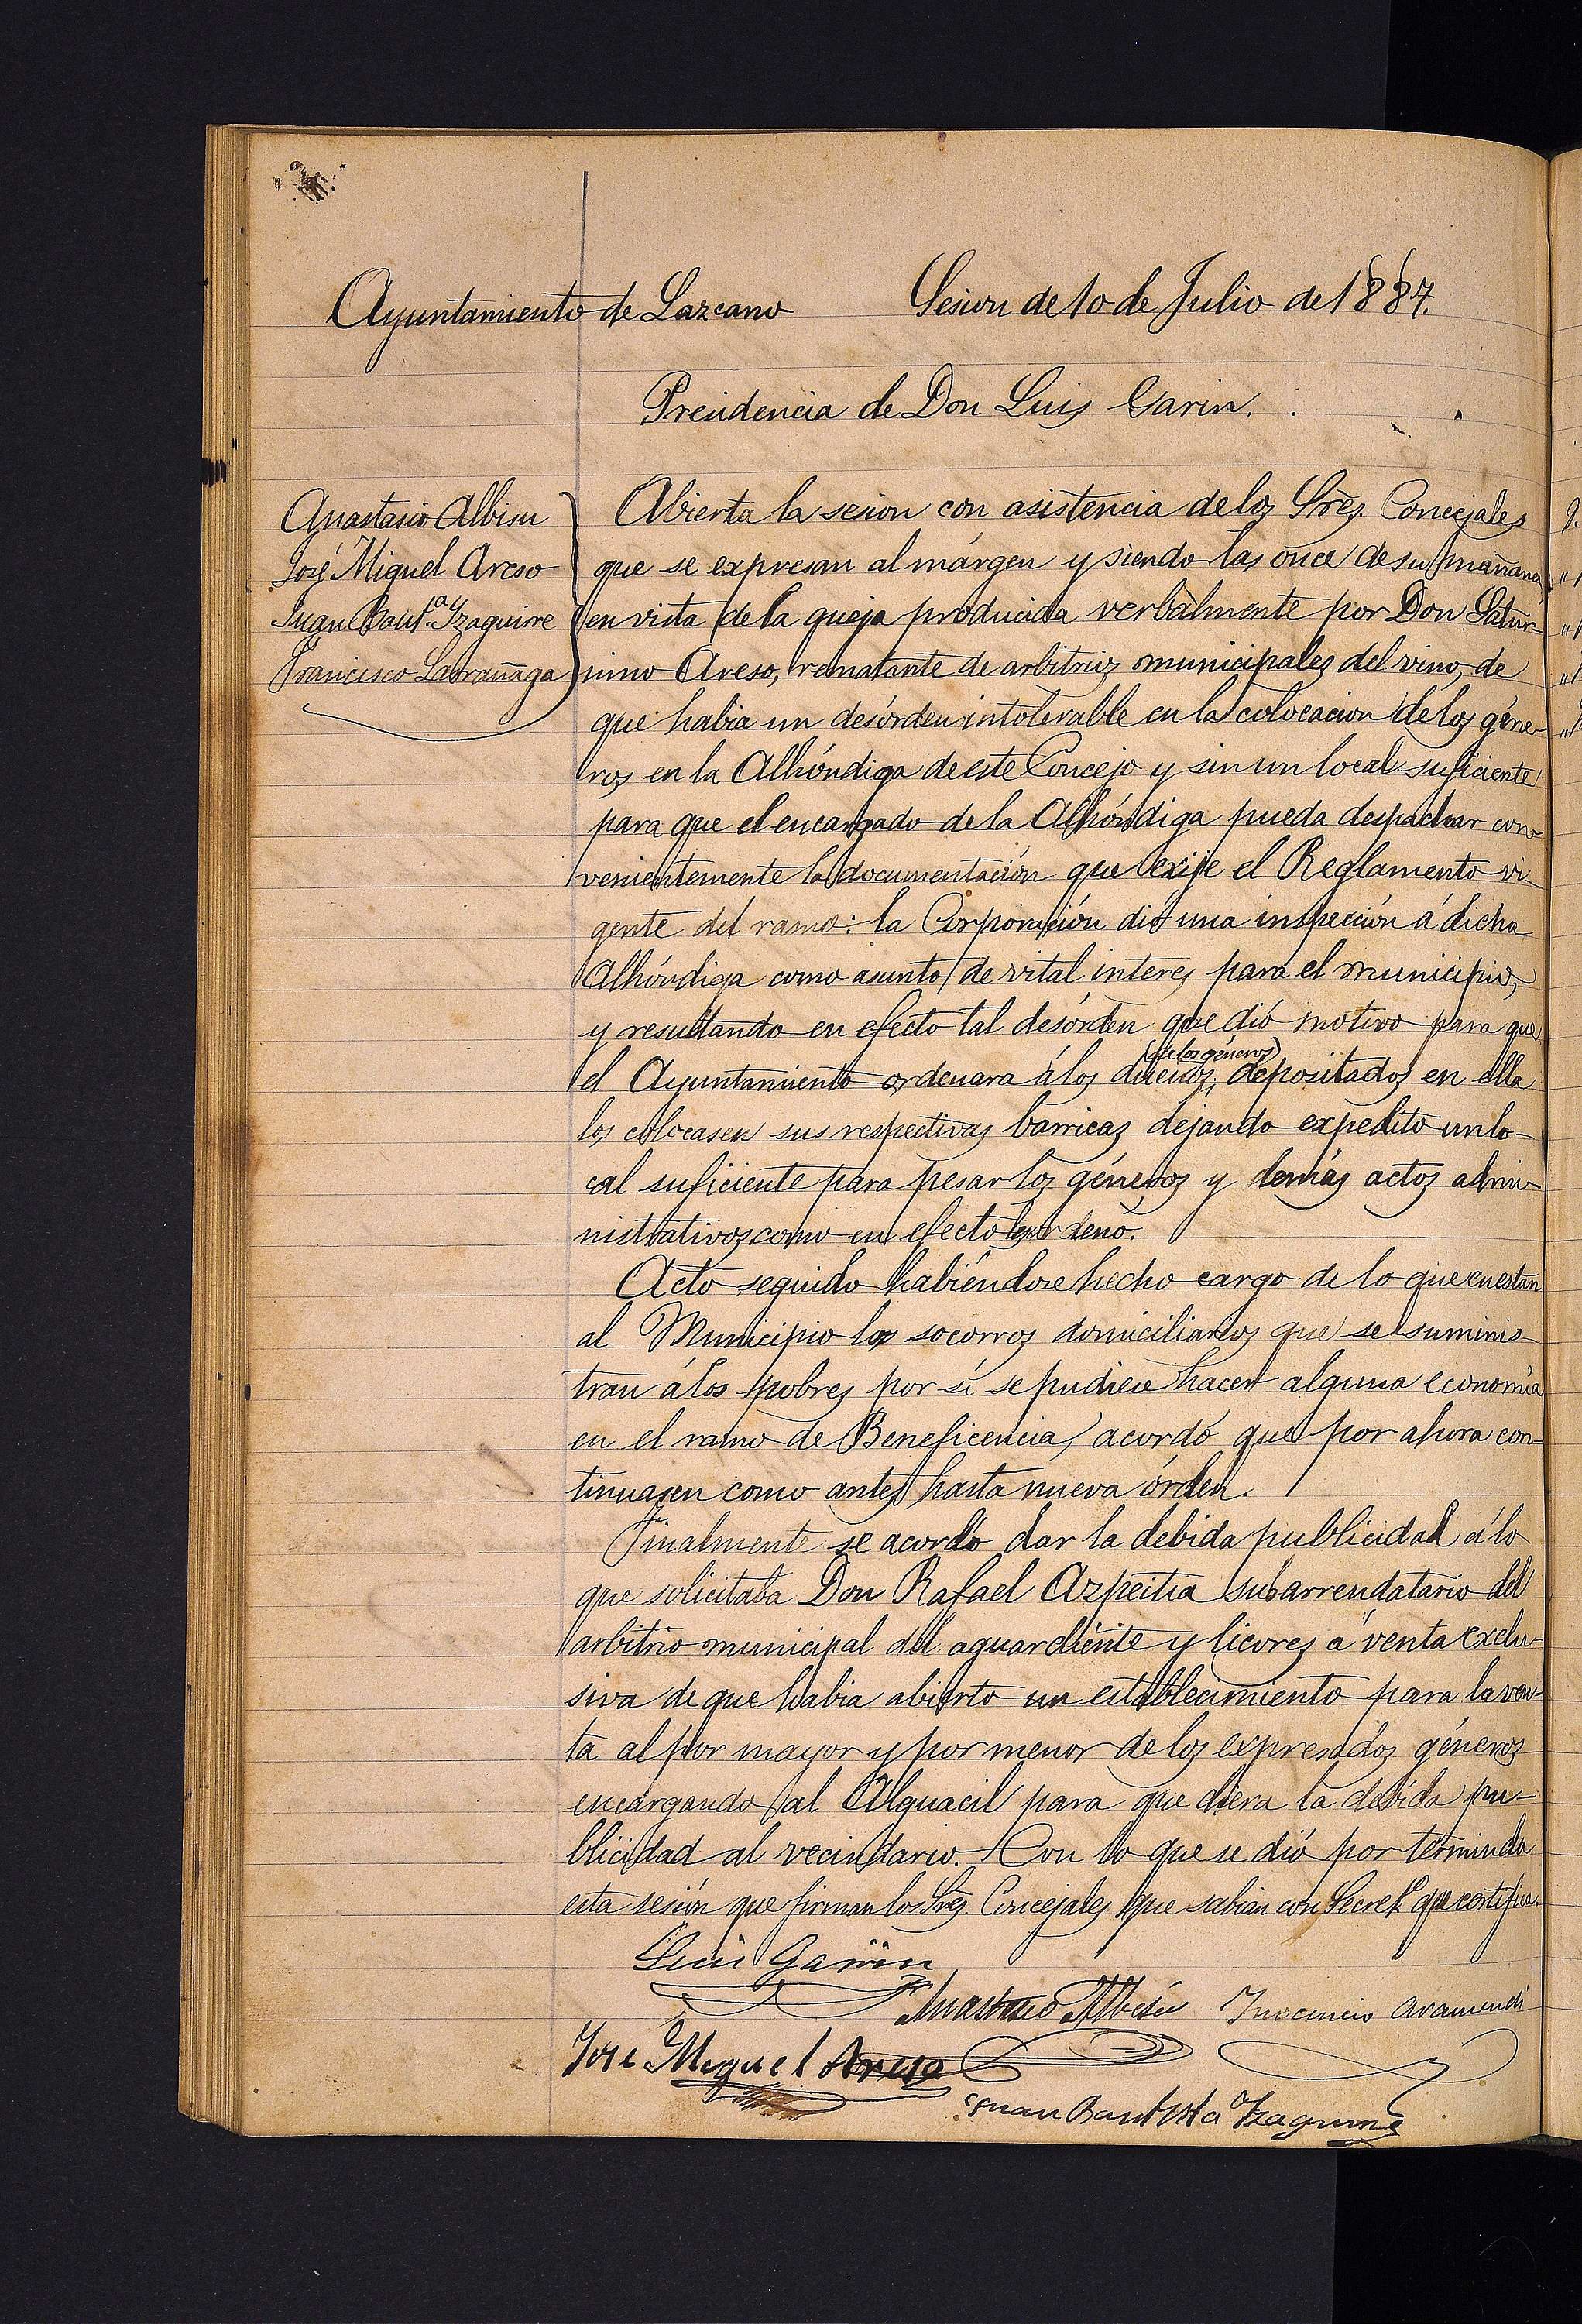 Ayuntamiento de Lazcano Sesion de 10 de Julio de 1887.
Presidencia de Don Luis Garin.
Anastasio Albisu
José Miguel Areso
Juan Baut.a Yzaguirre
Francisco Larrañaga
Abierta la sesion con asistencia de los Sres. Concejales
que se expresan al márgen y siendo las once de su mañana
en vista de la queja producida verbalmente por Don Satur-
nino Areso, rematante de arbitrios municipales del vino, de
que habia un desórden intolerable en la colocacion de los géne-
ros en la Alhóndiga de este Concejo y sin un local suficiente
para que el encargado de la Alhóndiga pueda despachar con-
venientemente la documentación que exije el Reglamento vi-
gente del ramo: la Corporación dió una inspección á dicha
Alhóndiga como asunto de vital interes para el municipio,
y resultando en efecto tal desórden que dió motivo para que
(de los géneros)
el Ayuntamiento ordenara á los dueños, depositados en ella
los colocasen sus respectivas barricas dejando expedito un lo-
cal suficiente para pesar los géneros y demás actos admi-
nistrativos como en efecto les ordenó.
Acto seguido habiéndose hecho cargo de lo que cuestan
al Municipio los socorros domiciliarios que se suminis-
tran á los pobres por si se pudiese hacer alguna economía
en el ramo de Beneficencia, acordó que por ahora con-
tinuasen como antes hasta nueva órden.
Finalmente se acordó dar la debida publicidad á lo
que solicitaba Don Rafael Azpeitia subarrendatario del
arbitrio municipal del aguardiente y licores á venta exclu-
siva de que habia abierto un establecimiento para la ven-
ta al por mayor y por menor de los expresados géneros
encargando al Alguacil para que diera la debida pu-
blicidad al vecindario. Con lo que se dió por terminda
esta sesión que firman los Sres. Concejales que sabian con Secret.o que certifica.
Luis Garin
Anastasio Albisu Inocencio Aramendi
José Miguel Areso
Juan Bautista Yzaguirre